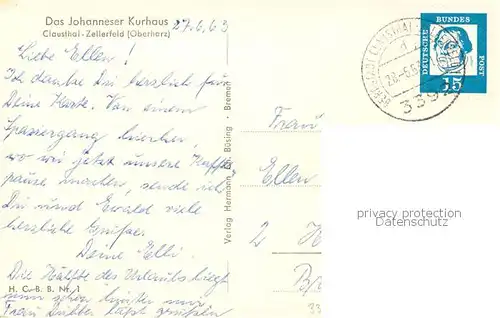 Das Johanneser Kurhaus
Clausthal-Zellerfeld (Oberharz)
27.6.63
Liebe Ellen!
Ich danke Dir herzlich für
Deine Karte. Von einem
Spaziergang hierher,
wo wir jetzt unsere Kaffee
pause machen, sende ich
Dir und Ewald viele
herzliche Grüße.
Deine Elli
Die Hälfte des Urlaubs liegt
schon hinter uns
Frau läßt grüßen
H. C. B. B. Nr. 1
Verlag Hermann Bösing · Bremen
DEUTSCHE BUNDESPOST
15
339
Frau
Ellen
2 H
B
33
privacy protection
Datenschutz